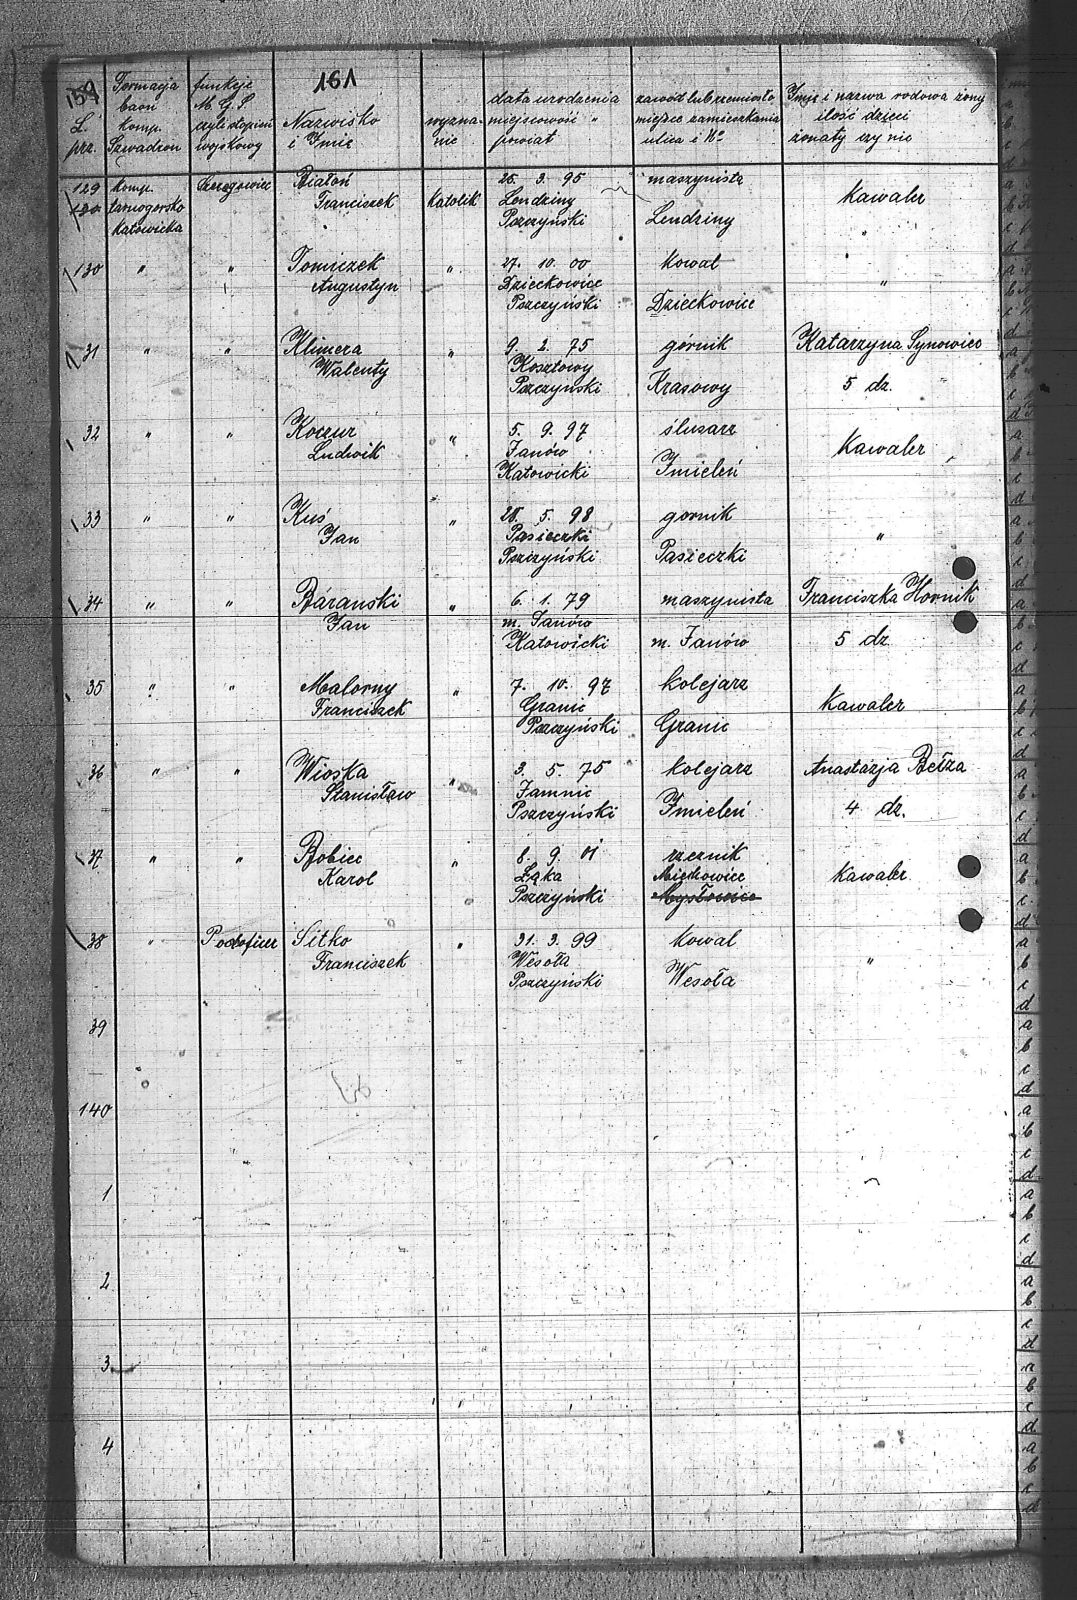 159 161
L. prz.
Formacja baon komp. Szwadron
funkcje M.G.S. czyli stopień wojskowy
Nazwisko i Imię
wyznanie
data urodzenia miejscowość " powiat
zawód lub rzemiosło miejsce zamieszkania ulica i No
Imię i nazwa rodowa żony ilość dzieci żonaty czy nie
129 Komp. Szeregowiec Białoń 25. 3. 95 maszynista
130 tarnogorsko Franciszek Katolik Lendziny Kawaler
Katowicka Pszczyński Lendziny "
130 " " Tomiczek " 27. 10. 00 Kowal
Augustyn Dzieckowice "
Pszczyński Dzieckowice
31 " " Klimera " 9. 2. 75 górnik Katarzyna Synowiec
Walenty Kosztowy
Pszczyński Krasowy 5 dz.
32 " " Koczur " 5. 9. 97 ślusarz
Ludwik Janów Kawaler
Katowicki Imieleń
33 " " Kuś " 5. 98 gornik
Jan Pasieczki "
Pszczyński Pasieczki
34 " " Barański " 6. 1. 79 maszynista Franciszka Hornik
Jan m. Janów
Katowicki m. Janów 5 dz
35 " " Malorny " 7. 10. 97 kolejarz
Franciszek Granic Kawaler
Pszczyński Granic
36 " " Wioska " 3. 5. 75 kolejarz Anastazja Bełza
Stanisław Jamnic
Pszczyński Imieleń 4 dz.
37 " " Bobiec " 8. 9. 01 rzeznik
Karol Łąka Miechowice Kawaler
Pszczyński Mysłowice
38 " Podoficer Sitko " 31. 3. 99 Kowal
Franciszek Wesoła "
Pszczyński Wesoła
39
140
1
2
3
4